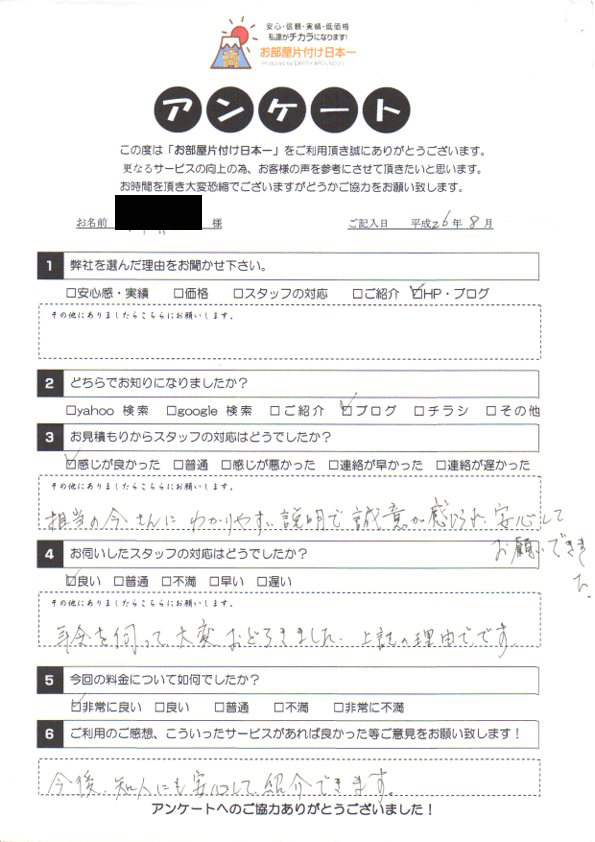 安心・信頼・実績・低価格
私達がチカラになります!
お部屋片付け日本一
アンケート
この度は「お部屋片付け日本一」をご利用頂き誠にありがとうございます。
更なるサービスの向上の為、お客様の声を参考にさせて頂きたいと思います。
お時間を頂き大変恐縮でございますがどうかご協力をお願い致します。
お名前 様 ご記入日 平成26年8月
1 弊社を選んだ理由をお聞かせ下さい。
□安心感・実績 □価格 □スタッフの対応 □ご紹介 ☑HP・ブログ
その他にありましたらこちらにお願いします。
2 どちらでお知りになりましたか?
□yahoo 検索 □google 検索 □ご紹介 ☑ブログ □チラシ □その他
3 お見積もりからスタッフの対応はどうでしたか?
☑感じが良かった □普通 □感じが悪かった □連絡が早かった □連絡が遅かった
その他にありましたらこちらにお願いします。
担当の今さんにわかりやすい説明で誠意が感じられ、安心して
お願いできまし
た。
4 お伺いしたスタッフの対応はどうでしたか?
☑良い □普通 □不満 □早い □遅い
その他にありましたらこちらにお願いします。
年令を伺って大変おどろきました。上記の理由でです。
5 今回の料金について如何でしたか?
☑非常に良い □良い □普通 □不満 □非常に不満
6 ご利用のご感想、こういったサービスがあれば良かった等ご意見をお願い致します!
今後、知人にも安心して紹介できます。
アンケートへのご協力ありがとうございました!